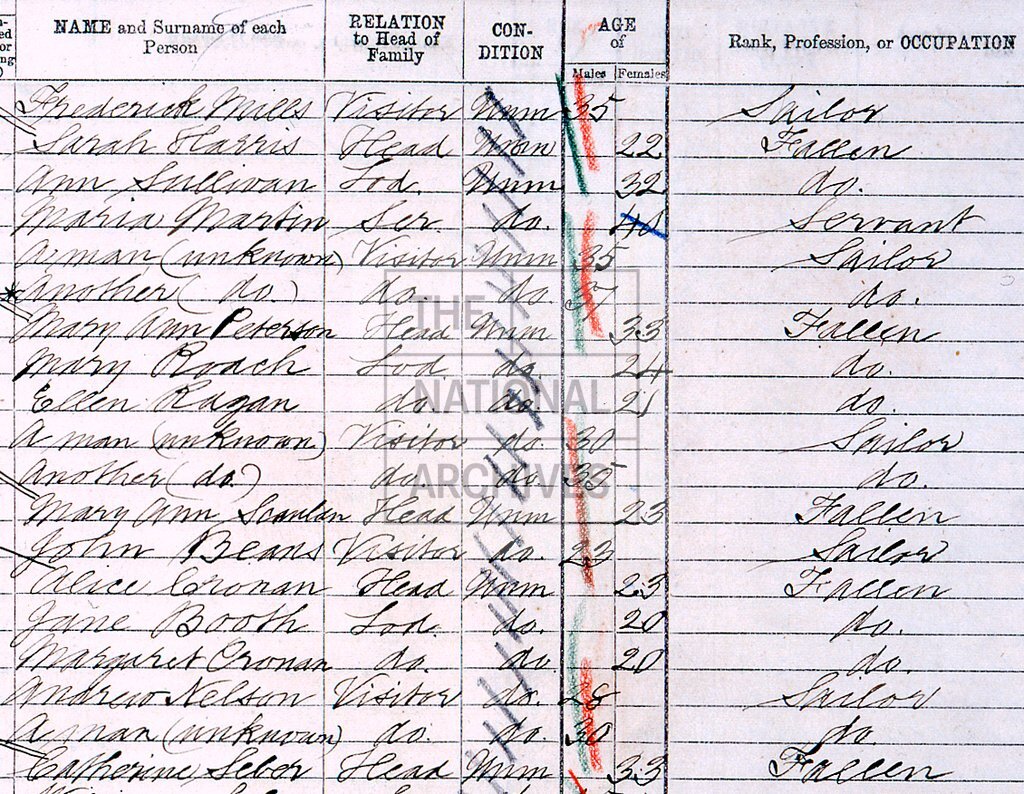 NAME and Surname of each Person
RELATION to Head of Family
CON-DITION
AGE of
Males Females
Rank, Profession, or OCCUPATION
Frederick Mills Visitor Unm 35 Sailor
Sarah Harris Head Unm 22 Fallen
Ann Sullivan Lod. Unm 32 do.
Maria Martin Ser. do. 40 Servant
A man (unknown) Visitor Unm 35 Sailor
Another (do.) do. do. 37 do.
Mary Ann Peterson Head Unm 33 Fallen
Mary Roach Lod do. 24 do.
Ellen Ragan do do 21 do.
A man (unknown) Visitor do. 30 Sailor
Another (do.) do. do. 35 do.
Mary Ann Scanlan Head Unm 23 Fallen
John Beans Visitor do. 23 Sailor
Alice Cronan Head Unm 23 Fallen
Jane Booth Lod. do. 20 do.
Margaret Cronan do. do. 20 do.
Andrew Nelson Visitor do. 28 Sailor
A man (unknown) do. do. 30 do.
Catherine Seber Head Unm 33 Fallen
THE
NATIONAL
ARCHIVES